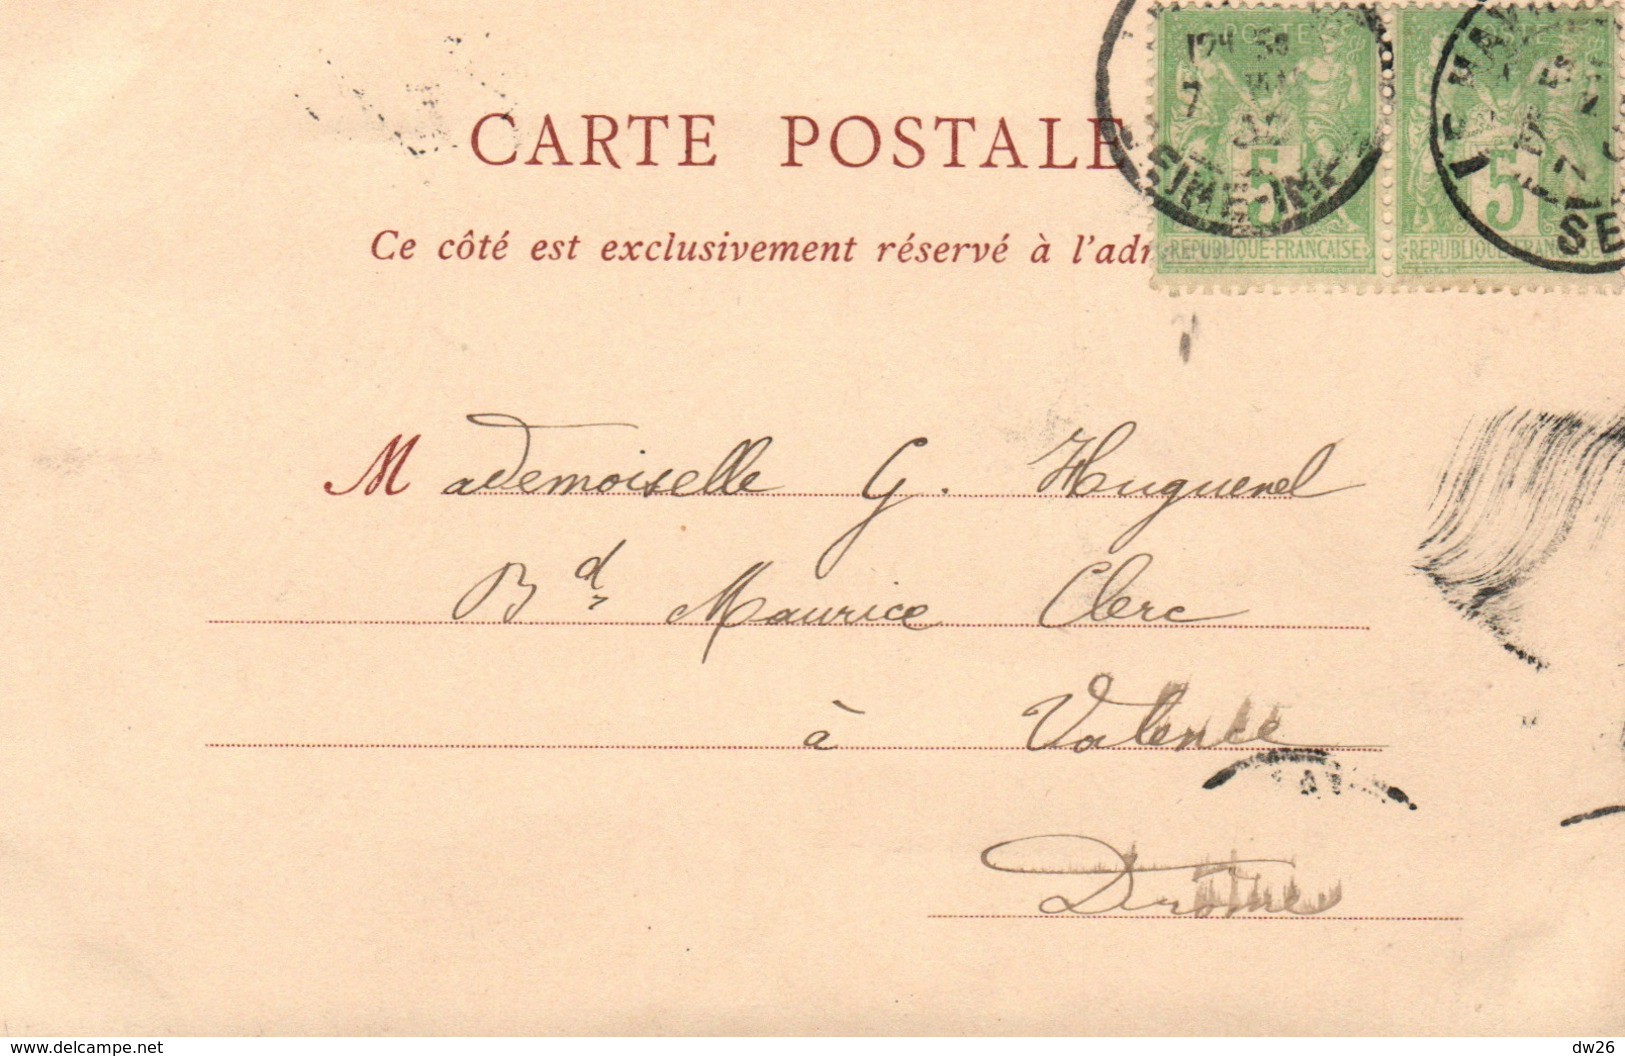 CARTE POSTALE
Ce côté est exclusivement réservé à l'adr
5
REPUBLIQUE-FRANÇAISE
5
REPUBLIQUE-FRANÇAISE
Mademoiselle G. Huguenel
Bd Maurice Clerc
à Valence
Drôme
www.delcampe.net
dw26